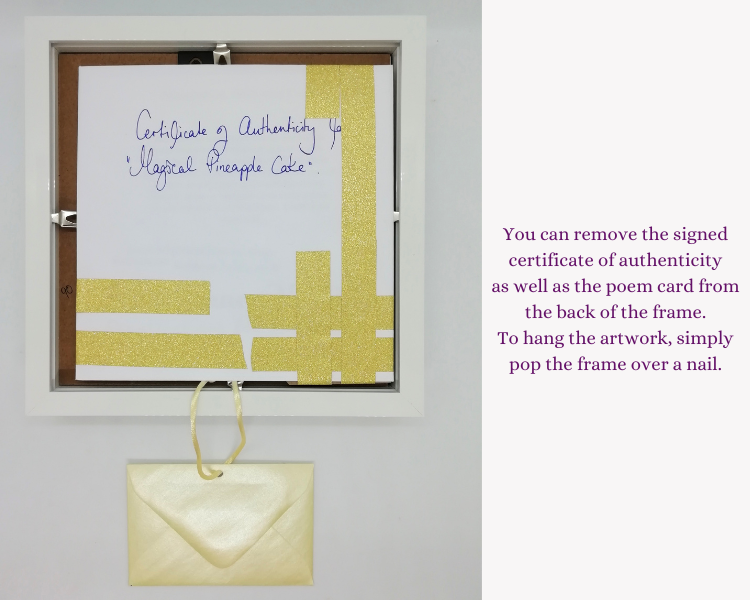 Certificate of Authenticity
"Magical Pineapple Cake".
You can remove the signed
certificate of authenticity
as well as the poem card from
the back of the frame.
To hang the artwork, simply
pop the frame over a nail.